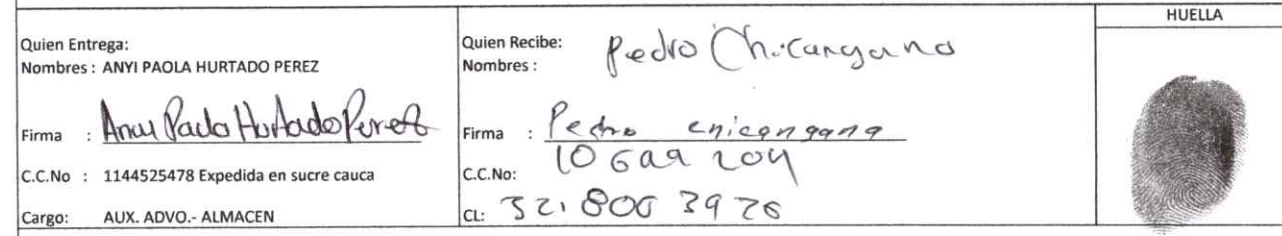 HUELLA
Quien Entrega:
Nombres : ANYI PAOLA HURTADO PEREZ
Firma : Anyi Paola Hurtado Perez
C.C.No : 1144525478 Expedida en sucre cauca
Cargo: AUX. ADVO.- ALMACEN
Quien Recibe: Pedro Chicangana
Nombres :
Firma : Pedro chicangana
C.C.No:
CL: 321 800 3926